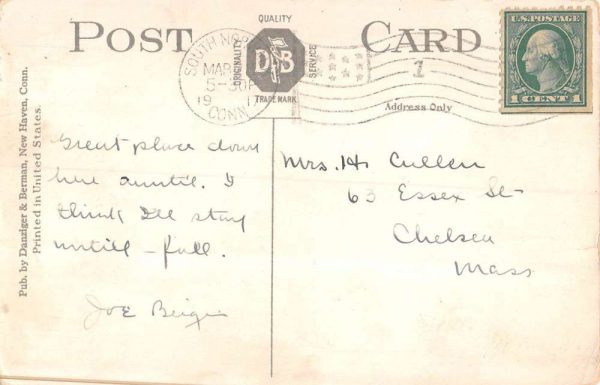 POST CARD
QUALITY
ORIGINALITY
D B
SERVICE
TRADE MARK
SOUTH NOR
MAR
5-30P
19 1
CONN.
1
U.S. POSTAGE
1 CENT 1
Address Only
Pub. by Danziger & Berman, New Haven, Conn.
Printed in United States.
Great place down
here auntie. I
think I'll stay
untill - fall.
Joe
Mrs. H. Cullen
63 Essex St-
Chelsea
Mass